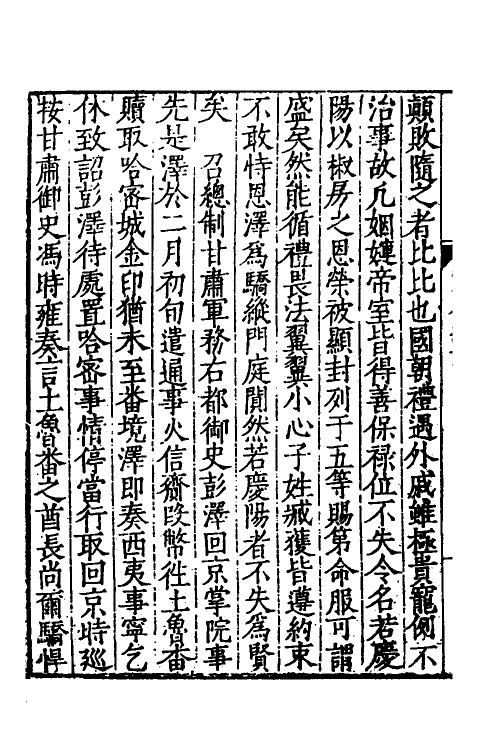 顛敗隨之者比比也國朝禮遇外戚雖極貴寵例不
治事故凡姻婕帝室皆得善保祿位不失令名若慶
陽以椒房之恩榮被顯封列于五等賜第命服可謂
盛矣然能循禮畏法翼翼小心子姓臧獲皆遵約束
不敢恃恩澤爲驕縱門庭閴然若慶陽者不失爲賢
矣　召總制甘肅軍務右都御史彭澤回京掌院事
先是澤於二月初旬遣通事火信齎段幣徃土魯番
贖取哈密城金印猶未至番境澤即奏西夷事寧乞
休致詔彭澤待處置哈密事情停當行取回京時廵
按甘肅御史馮時雍奏言土魯番之酋長尚爾驕悍